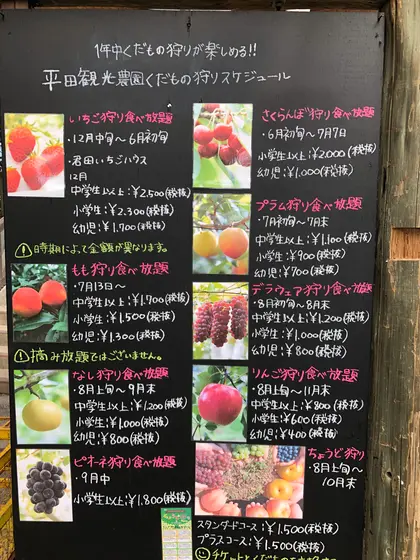 1年中くだもの狩りが楽しめる!!
平田観光農園くだもの狩りスケジュール
いちご狩り食べ放題
・12月中旬～6月初旬
・君田いちごハウス
12月
中学生以上:¥2.500(税抜)
小学生:¥2.300(税抜)
幼児:¥1.700(税抜)
!時期によって金額が異なります。
もも狩り食べ放題
・7月13日～
中学生以上:¥1.700(税抜)
小学生:¥1.500(税抜)
幼児:¥1.300(税抜)
!摘み放題ではございません。
なし狩り食べ放題
・8月上旬～9月末
中学生以上:¥1.200(税抜)
小学生:¥1.000(税抜)
幼児:¥800(税抜)
ピオーネ狩り食べ放題
・9月中
小学生以上:¥1.800(税抜)
さくらんぼ狩り食べ放題
・6月初旬～7月7日
小学生以上:¥2.000(税抜)
幼児:¥1.000(税抜)
プラム狩り食べ放題
・7月初旬～7月末
中学生以上:¥1.100(税抜)
小学生:¥900(税抜)
幼児:¥700(税抜)
デラウェア狩り食べ放題
・8月初旬～8月末
中学生以上:¥1.200(税抜)
小学生:¥1.000(税抜)
幼児:¥800(税抜)
りんご狩り食べ放題
・8月上旬～11月末
中学生以上:¥800(税抜)
小学生:¥600(税抜)
幼児:¥400(税抜)
ちょうど狩り
・8月上旬～
10月末
スタンダードコース:¥1.500(税抜)
プラスコース:¥1.500(税抜)